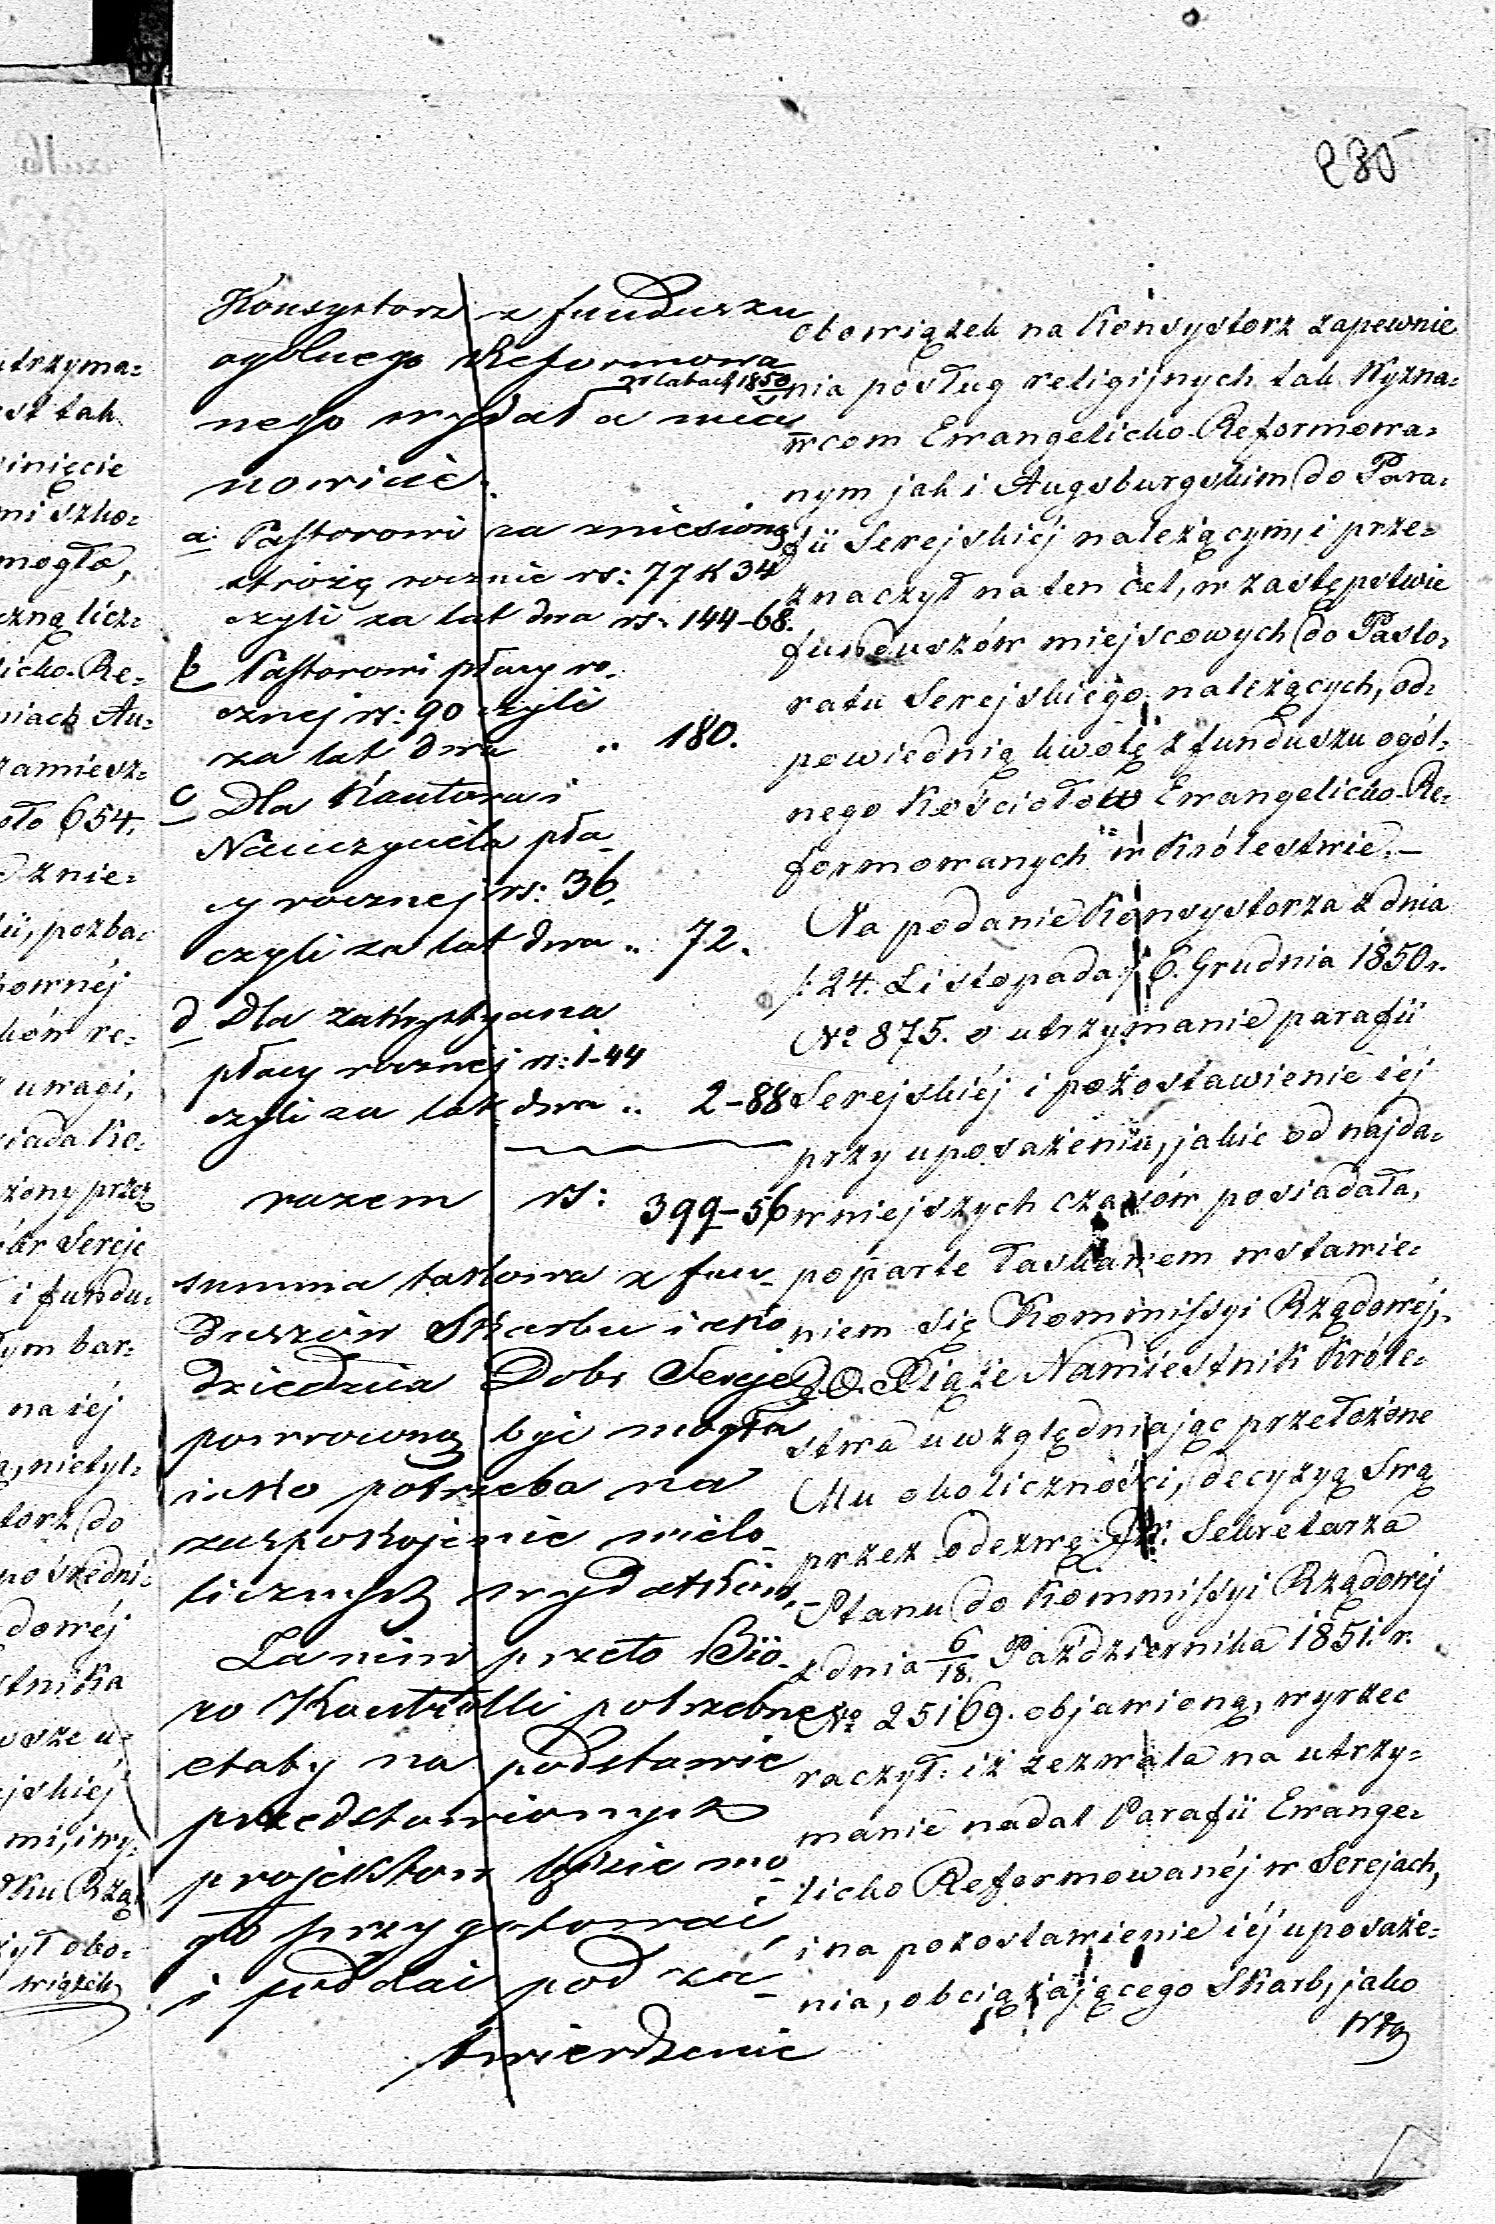 235
Konsystorz z funduszu
ogólnego Reformowa
w latach 1850
nego wydał a mia
nowicie.
a. Pastorowi za zniesioną
stróżę rocznie rs: 77 k 34
czyli za lat dwa rs. 144-68.
b Pastorowi płacy ro-
cznej rs: 90 czyli
za lat dwa " 180.
c Dla Kantora i
Nauczyciela pła-
cy rocznej rs: 36,
czyli za lat dwa " 72.
d Dla zakrystyana
płacy rocznej rs: 1-44
czyli za lat dwa " 2-88
razem rs: 399-56
summa takowa z fun-
duszów Skarbu i
dziedzica Dobr Sereje
powrowną być mogła
iako potrzeba na
zaspokojenie nielo-
licznych wydatków,
Zanim przeto Bió-
ro Kontrolli potrzebne
etaby na podstawie
przedstawionych
projektow będzie mo-
gło przygotować
i poddać pod za-
twierdzenie
obowiązek na Konsystorz zapewnie
nia posług religijnych tak Wyzna=
wcom Ewangelicko-Reformowa=
nym jak i Augsburgskim do Para=
fii Serejskiéj należącym, i prze=
znaczył na ten cel, w zastępstwie
funduszów miejscowych do Pasto=
ratu Serejskiego należących, od=
powiednią kwotę z funduszu ogól=
nego Kościołów Ewangelicko-Re=
formowanych w Królestwie.—
Na podanie Konsystorza z dnia
/:24. Listopada:/ 6. Grudnia 1850 r.
No 875. o utrzymanie parafii
Serejskiéj i pozostawienie iéj
przy uposażeniu, jakie od najda=
wniejszych czasów posiadała,
poparte łaskawem wstawie=
niem się Kommissyi Rządowéj,
J.O. Xiąże Namiestnik Króle=
stwa uwzględniając przełożone
Mu okoliczności, decyzyą Swą
przez odezwę JW. Sekretarza
Stanu do Kommissyi Rządowéj
z dnia 6/18. Października 1851. r.
No 25169. objawioną, wyrzec
raczył: iż zezwala na utrzy=
manie nadal Parafii Ewange=
licko Reformowanéj w Serejach,
i na pozostawienie iéj uposaże=
nia, obciążającego Skarb, jako